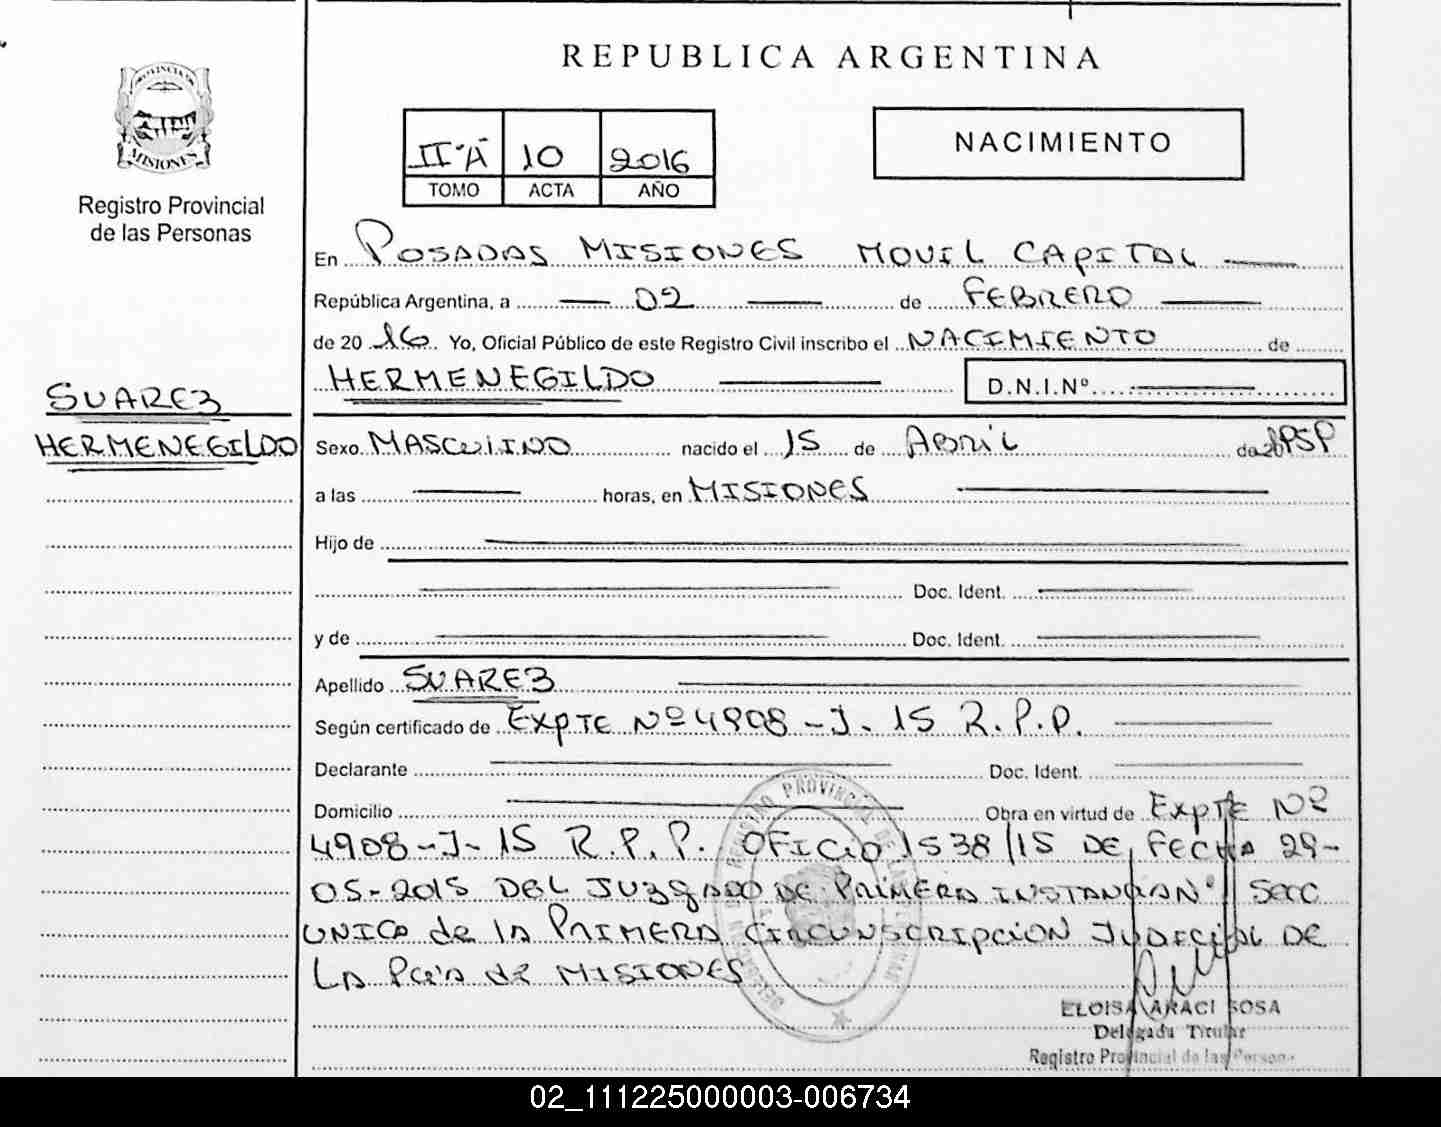 REPUBLICA ARGENTINA
PROVINCIA DE
MISIONES
Registro Provincial
de las Personas
II "A" 10 2016
TOMO ACTA AÑO
NACIMIENTO
En POSADAS MISIONES MOVIL CAPITAL
República Argentina, a 02 de FEBRERO
de 2016 Yo, Oficial Público de este Registro Civil inscribo el NACIMIENTO de
HERMENEGILDO D.N.I.Nº
SUAREZ
HERMENEGILDO
Sexo MASCULINO nacido el 15 de Abril de
a las horas, en MISIONES
Hijo de
Doc. Ident.
y de Doc. Ident.
Apellido SUAREZ
Según certificado de EXPTE Nº 4908-J-15 R.P.P.
Declarante Doc. Ident.
Domicilio Obra en virtud de EXPTE Nº
4908-J-15 R.P.P. OFICIO 1538/15 DE FECHA 29-
05-2015 DEL JUZgADO DE PRIMERA INSTANCIA Nº 1 SECC
UNICA de LA PRIMERA CIRCUNSCRIPCION JUDICIAL DE
LA Pcia de MISIONES
REGISTRO PROVINCIAL DE LAS
ELOISA ARACI SOSA
Delegada Titular
Registro Provincial de las Persona
02_111225000003-006734